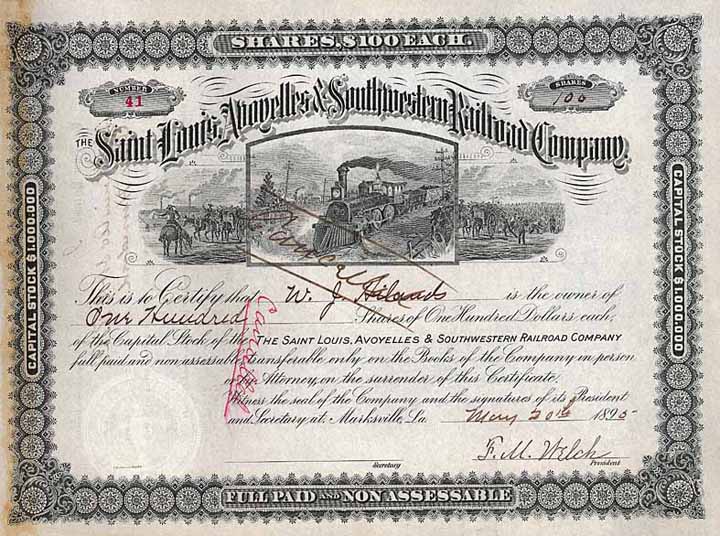 SHARES, $100 EACH.
NUMBER
41
SHARES
100
THE Saint Louis, Avoyelles & Southwestern Railroad Company.
CAPITAL STOCK $1,000,000
CAPITAL STOCK $1,000,000
Cancelled
This is to Certify that W. J. is the owner of
One Hundred Shares of One Hundred Dollars each,
of the Capital Stock of the THE SAINT LOUIS, AVOYELLES & SOUTHWESTERN RAILROAD COMPANY
full paid and non-assessable, transferable only on the Books of the Company in person
or by Attorney, on the surrender of this Certificate.
Witness the seal of the Company and the signatures of its President
and Secretary at Marksville, La. May 20th 1895
Cancelled
F. M. Welch
Secretary
President
FULL PAID AND NON ASSESSABLE